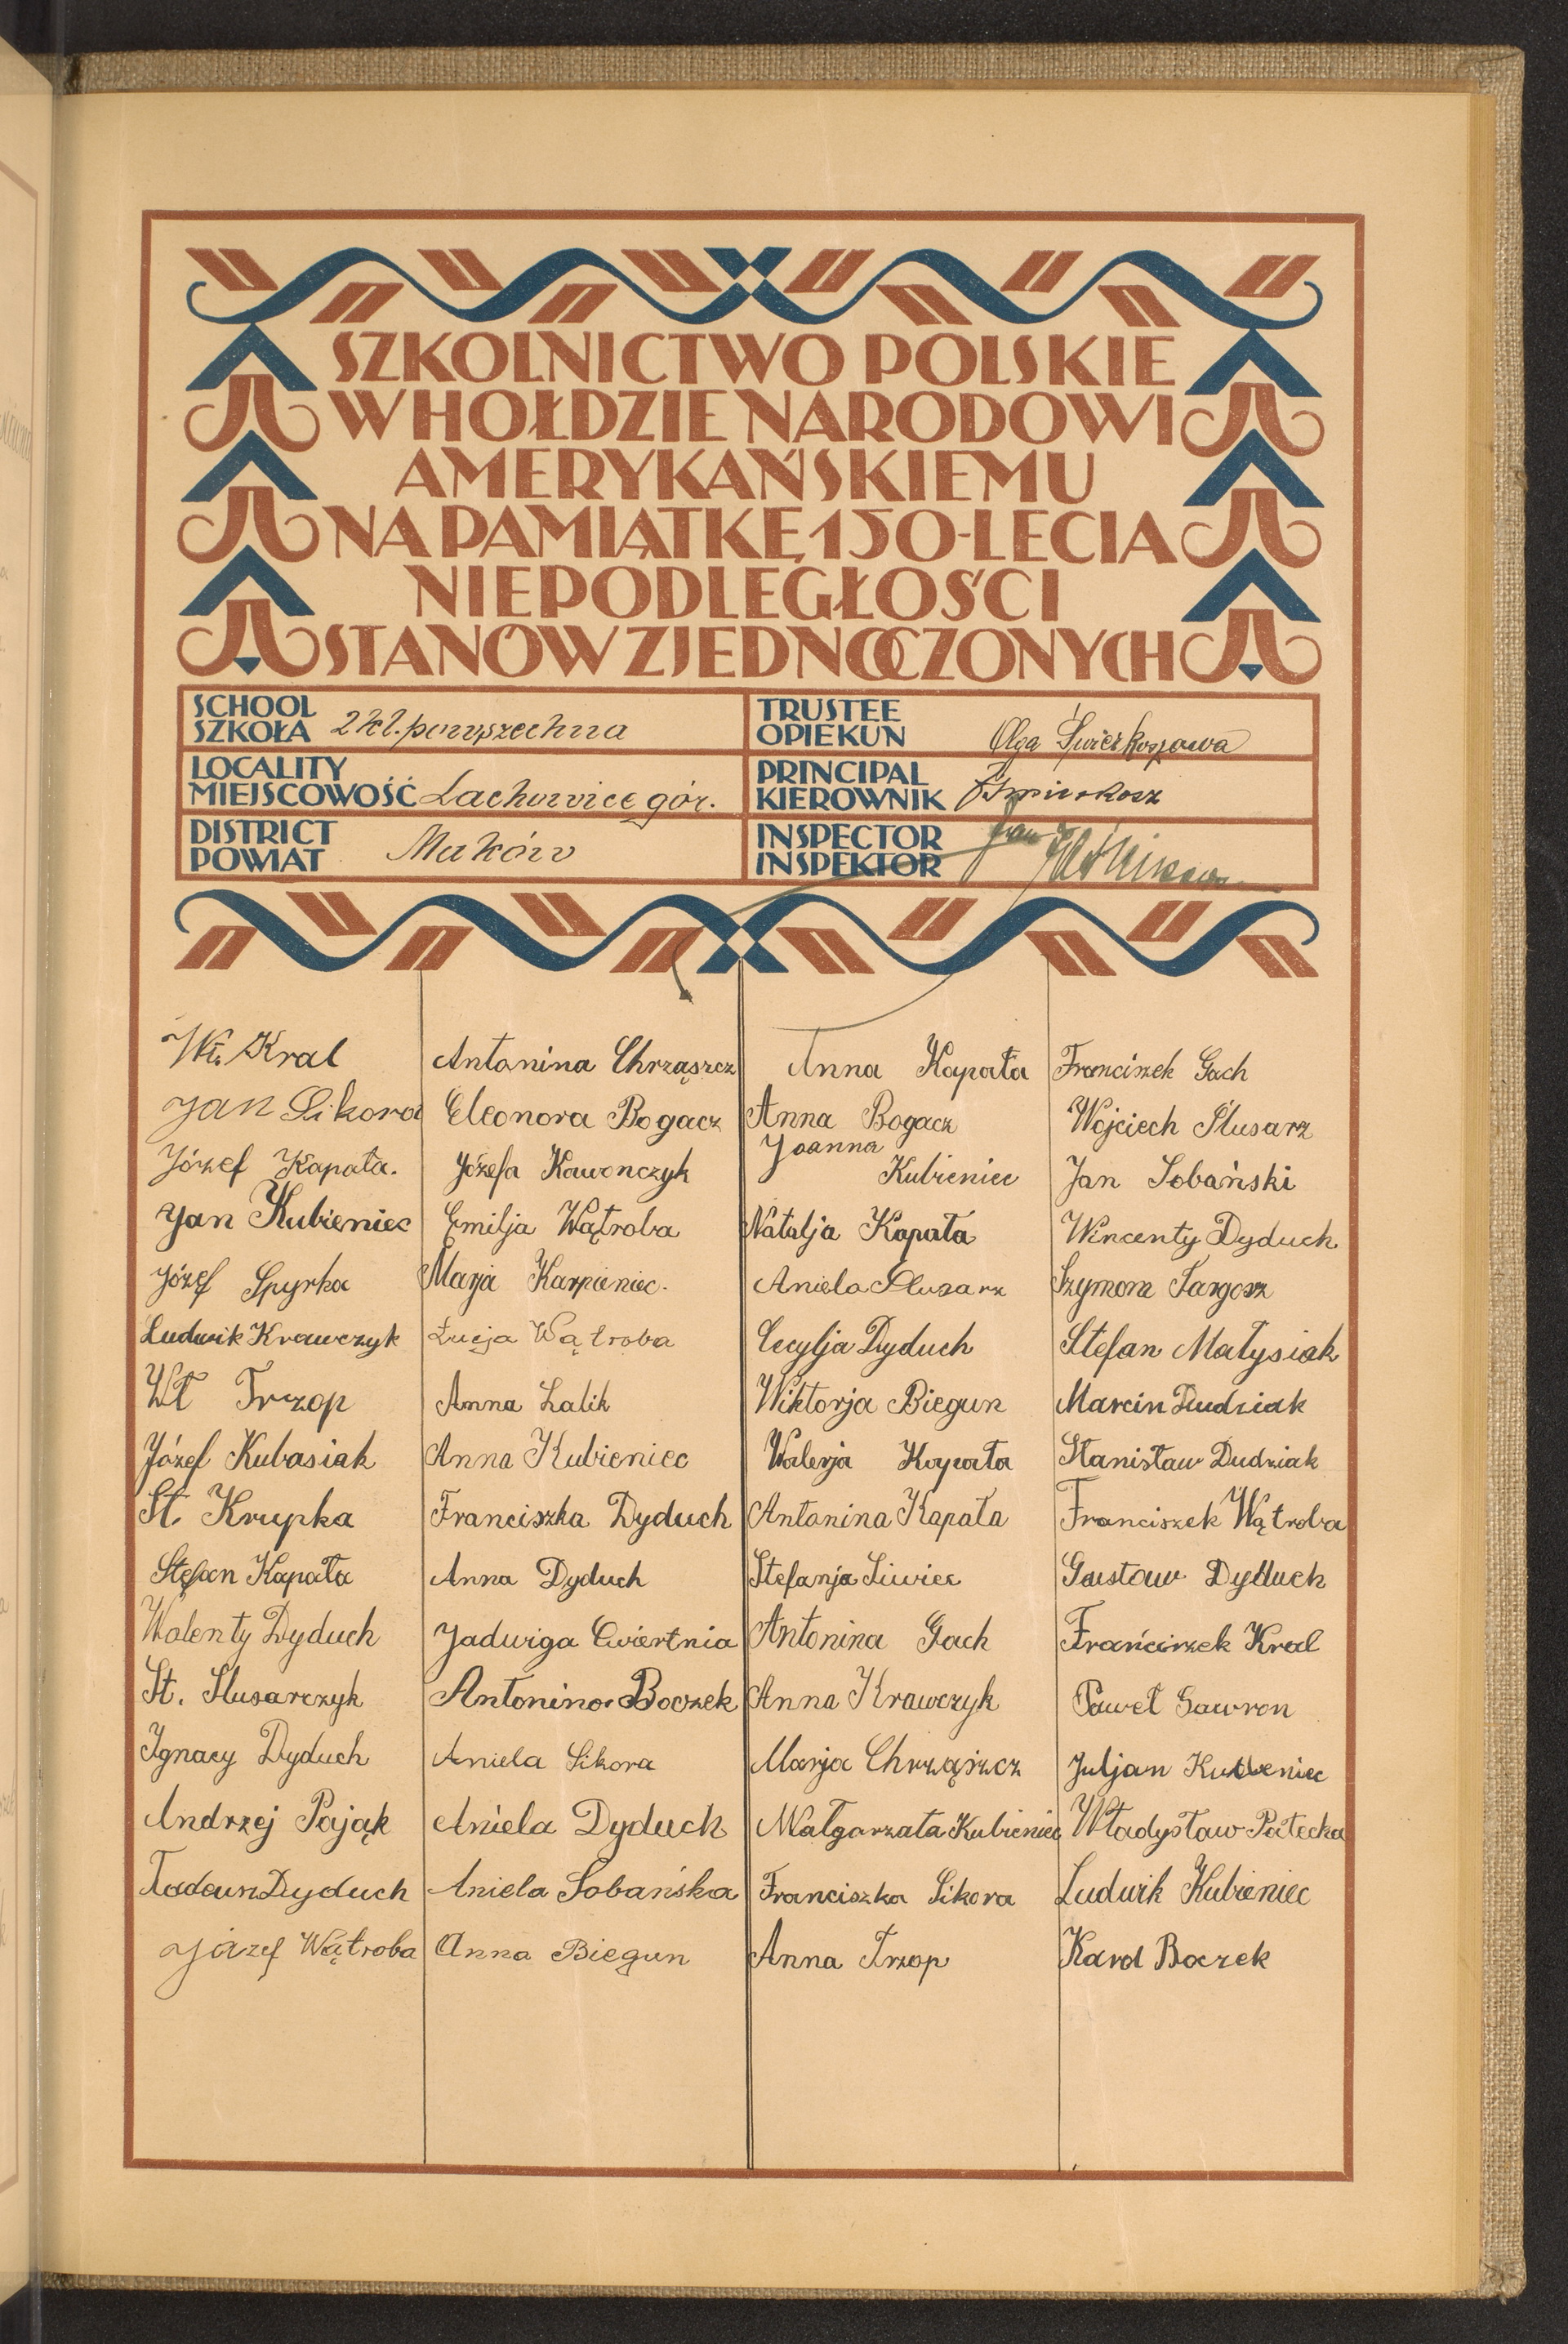 SZKOLNICTWO POLSKIE
W HOŁDZIE NARODOWI
AMERYKAŃSKIEMU
NA PAMIĄTKĘ 150-LECIA
NIEPODLEGŁOŚCI
STANÓW ZJEDNOCZONYCH
SCHOOL
SZKOŁA 2 kl. powszechna
TRUSTEE
OPIEKUN Olga Świerkoszowa
LOCALITY
MIEJSCOWOŚĆ Lachowice gór.
PRINCIPAL
KIEROWNIK
DISTRICT
POWIAT Maków
INSPECTOR
INSPEKTOR Jan
Wł. Kral
Jan Sikora
Józef Kapała.
Jan Kubieniec
Józef Spyrka
Ludwik Krawczyk
Wł Trzop
Józef Kubasiak
St. Krupka
Stefan Kapała
Walenty Dyduch
St. Ślusarczyk
Ignacy Dyduch
Andrzej Pająk
Tadeusz Dyduch
Józef Wątroba
Antonina Chrząszcz
Eleonora Bogacz
Józefa Kawonczyk
Emilja Wątroba
Marja Karpieniec.
Łucja Wątroba
Anna Lalik
Anna Kubieniec
Franciszka Dyduch
Anna Dyduch
Jadwiga Cwiertnia
Antonina Boczek
Aniela Sikora
Aniela Dyduch
Aniela Sobańska
Anna Biegun
Anna Kapała
Anna Bogacz
Joanna
Kubieniec
Natalja Kapała
Aniela Slusarz
Cecylja Dyduch
Wiktorja Biegun
Walerja Kapała
Antonina Kapała
Stefanja Siwiec
Antonina Gach
Anna Krawczyk
Marja Chrząszcz
Małgorzata Kubieniec
Franciszka Sikora
Anna Trzop
Franciszek Gach
Wojciech Ślusarz
Jan Sobański
Wincenty Dyduch
Szymon Targosz
Stefan Małysiak
Marcin Dudziak
Stanisław Dudziak
Franciszek Wątroba
Gustaw Dyduch
Franciszek Kral
Paweł Gawron
Juljan Kubieniec
Władysław Pałecka
Ludwik Kubieniec
Karol Boczek